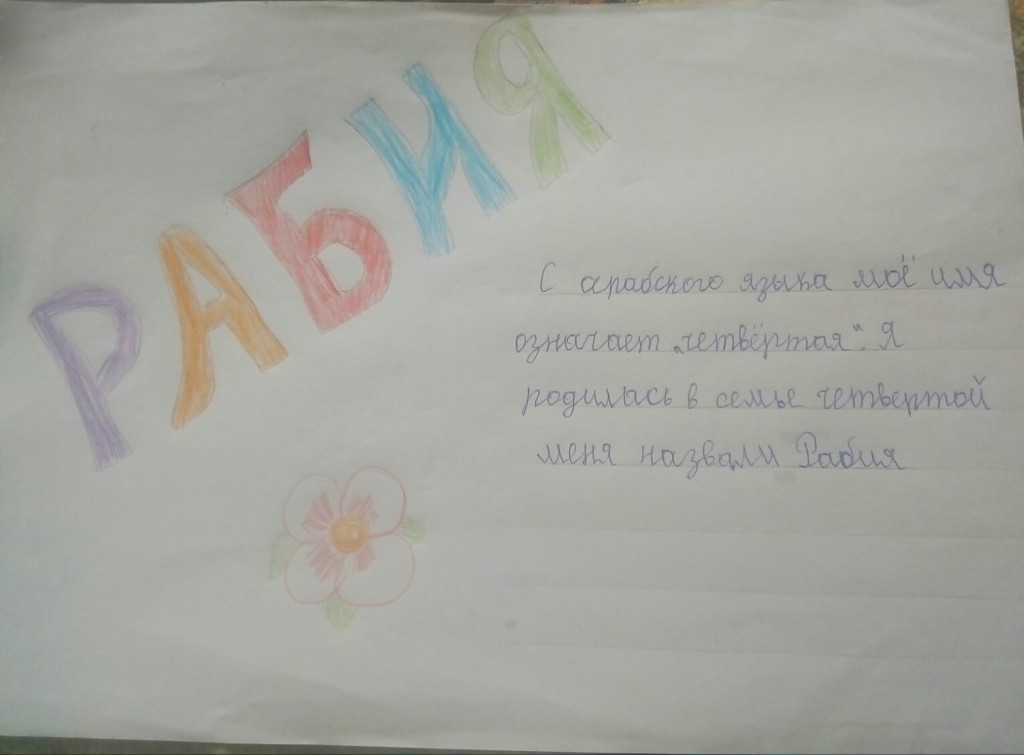 РАБИЯ
С арабского языка моё имя
означает „четвёртая". Я
родилась в семье четвертой
меня назвали Рабия